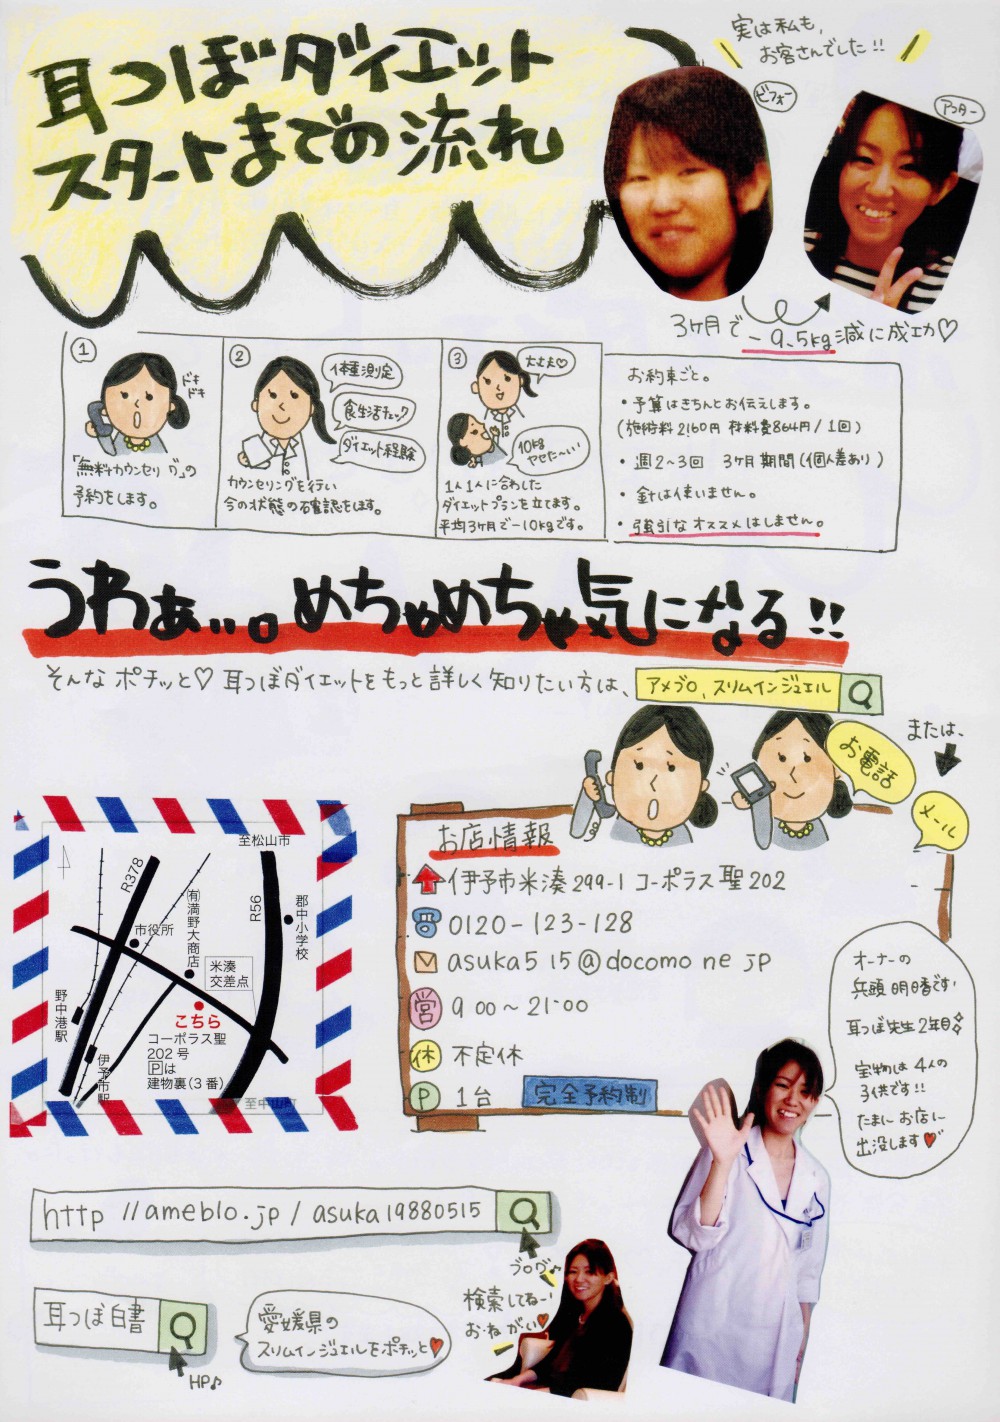 耳つぼダイエット
スタートまでの流れ
実は私も、
お客さんでした!!
ビフォー
アフター
3ヶ月で -9.5kg減に成功♡
①
ドキ
ドキ
「無料カウンセリング」の
予約をします。
②
体重測定
食生活チェック
ダイエット経験
カウンセリングを行い
今の状態の確認をします。
③
大丈夫♡
10kg
やせた〜い
1人1人に合わした
ダイエットプランを立てます。
平均3ヶ月で-10kgです。
お約束ごと。
・予算はきちんとお伝えします。
(施術料2160円 材料費864円/1回)
・週2〜3回 3ヶ月期間(個人差あり)
・針は使いません。
・強引なオススメはしません。
うわぁ...。めちゃめちゃ気になる!!
そんなポチッと♡耳つぼダイエットをもっと詳しく知りたい方は、
アメブロ、スリムインジュエル
または、
お電話
メール
至松山市
R378
R56
㈲満野大商店
郡中小学校
市役所
米湊
交差点
野中港駅
こちら
コーポラス聖
202号
Pは
建物裏(3番)
伊予市駅
至中山町
お店情報
伊予市米湊299-1 コーポラス聖202
0120-123-128
asuka5 15@docomo ne jp
営 9 00〜21:00
休 不定休
P 1台 完全予約制
オーナーの
兵頭明香です!
耳つぼ先生2年目
宝物は4人の
子供です!!
たまにお店に
出没します♥
http //ameblo.jp/asuka19880515
ブログ♪
検索してねー!
お・ね・が・い♥
耳つぼ白書
HP♪
愛媛県の
スリムインジュエルをポチッと♥